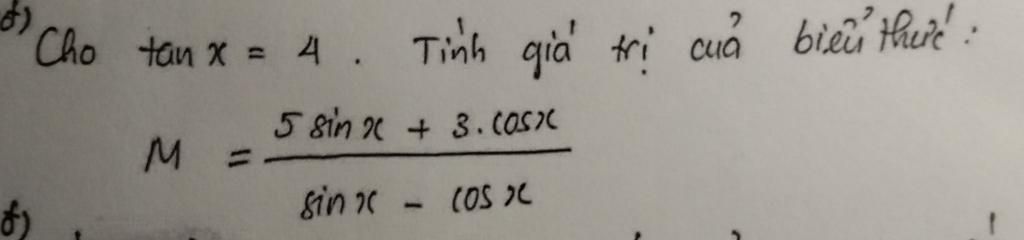 d) Cho tan x = 4 . Tính giá trị của biểu thức :
M = (5 sin x + 3 . cos x) / (sin x - cos x)
f)